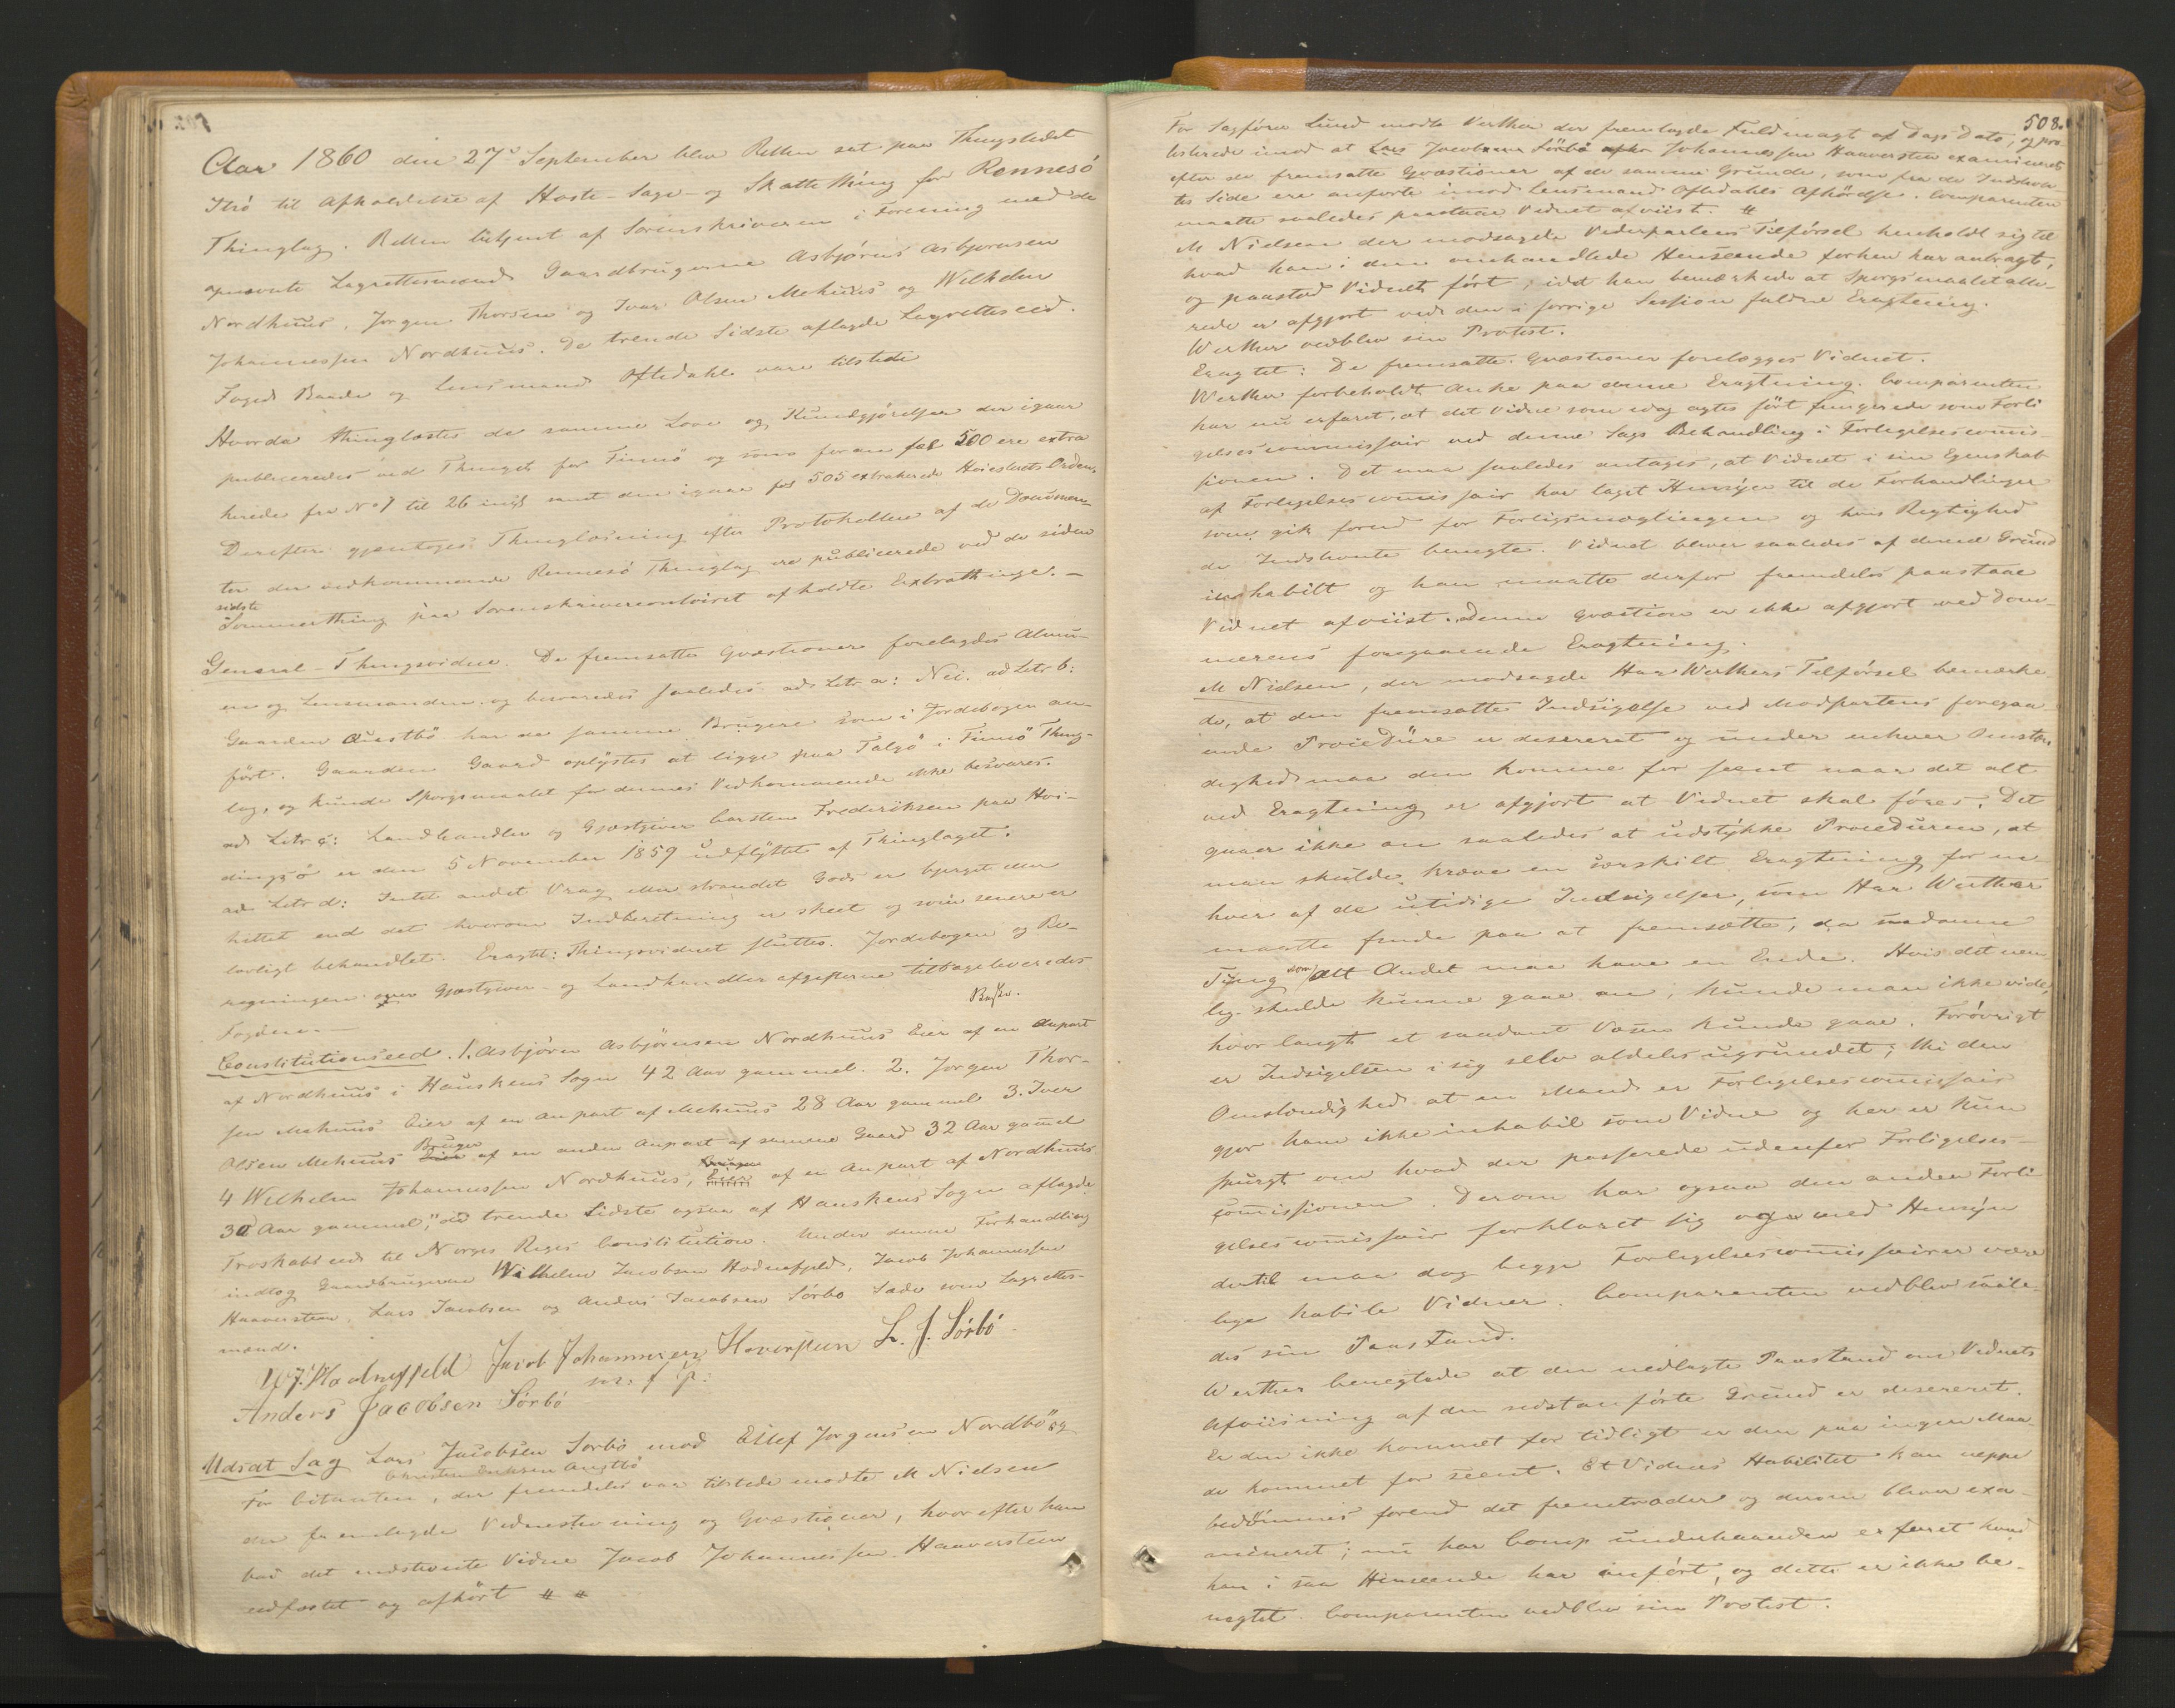 Aar 1860 den 27de September blev Retten sat paa Thingstedet
Strö til Afholdelse af Høste- Sage- og Skattething for Rennesö
Thinglag. Retten betjent af Sorenskriveren i Forening med de
opnævnte Lagrettesmænd Gaardbrugerne Asbjörns Asbjörnsen
Nordhuus, Jorgen Thorsen og Ivar Olsen Mehuus og Wilhelm
Johannessen Nordhuus. De trende Sidste aflagde Lagrettesed.
Foged Baade og Lensmand Oftedahl vare tilstede
Hvorda thinglæstes de samme Love og Kundgjörelser der igaar
publiceredes ved Thinget for Finnö og som foran fol 500 ere extra
herede fra No 7 til 26 incl samt den igaar fol 505 extraherede Høiesterets Orden.
Derefter gjentoges Thinglæsning efter Protokollen af de Documen-
ter der vedkommende Rennesö Thinglag ere publicerede ved de siden
sidste
Sommerthing paa Sorenskrivercontoiret afholdte Extrathinge. —
General-Thingsvidne. De fremsatte Qvæstioner forelagdes Almu-
en og Lensmanden og besvaredes saaledes ad Litr a: Nei. ad Litr b:
Gaarden Austbö har de samme Brugere som i Jordebogen an-
fört. Gaarden Gaard oplystes at ligge paa Talgö i Finnö Thing-
lag, og kunde Spörgsmaalet for dennes Vedkommende ikke besvares.
ad Litr c: Landhandler og Gjæstgiver Carsten Frederiksen paa Hoi-
dingsö er den 5 November 1859 udflyttet af Thinglaget.
ad Litr d: Intet andet Vrag eller strandet Gods er bjerget eller
hittet end det hvorom Indberetning er skeet og som senere er
lovligt behandlet. Eragtet: Thingsvidnet sluttes. Jordebogen og Be-
regningen over Gjæstgiver- og Landhandler afgifterne tilbageleveredes
Fogden. —
Constitutionseed. 1. Asbjörn Asbjörnsen Nordhuus Eier af en Anpart
af Nordhuus i Hauskens Sogn 42 Aar gammel. 2. Jorgen Thor-
sen Mehuus Eier af en Anpart af Mehuus 28 Aar gammel 3. Iver
Bruger
Olsen Mehuus Eier af en anden Anpart af samme Gaard 32 Aar gammel
Bruger
4 Wilhelm Johannessen Nordhuus, Eier af en Anpart af Nordhuus
30 Aar gammel, de trende Sidste ogsaa af Hauskens Sogn aflagde
Troskabseed til Norges Riges Constitution. Under denne Forhandling
indtog Gaardbrugerne Wilhelm Jacobsen Hodnefjeld, Jacob Johannessen
Haaversteen, Lars Jacobsen og Anders Jacobsen Sörbo Sæde som Lagrettes-
mænd.
W. J. Hodnefjeld Jacob Johannesen Haversteen L. J. Sörbö
m: f p:
Anders Jacobsen Sörbö
Udsat Sag Lars Jacobsen Sorbö mod Ellef Jorgensen Nordbö og
Christen Eriksen Austbö
For Citanten, der fremdeles var tilstede modte M Nielsen
der fremlagde Vidnestevning og Qvæstioner, hvorefter han
bad det indstevnte Vidne Jacob Johannessen Haaversteen
edfæstet og afhört
508.
For Sagförer Lund modte Werther der fremlagde Fuldmagt af Dags Dato, og pro-
testerede imod at Lars Jacobsen Sörbö Johannessen Haaversteen examineres
efter de fremsatte Qvæstioner af de samme Grunde, som fra de Indstevn-
tes Side ere anförte imod Lensmand Oftedahls Afhörelse. Comparenten
maatte saaledes paastaae Vidnet afviist.
M Nielsen der modsagde Vederpartens Tilförsel henholdt sig til
hvad han i den omhandlede Henseende forhen har anbragt,
og paastod Vidnet fört, idet han bemærkede at Sporgsmaalet alle-
rede er afgjort ved den i forrige Session faldne Eragtning.
Werther vedblev sin Protest.
Eragtet: De fremsatte Qvæstioner forelægges Vidnet.
Werther forbeholdt Anke paa denne Eragtning. Comparenten
har nu erfaret, at det Vidne som idag agtes fört fungerede som Forli
gelsescommissair ved denne Sags Behandling i Forligelsescommis-
sionen. Det maa saaledes antages, at Vidnet i sin Egenskab
af Forligelsescommissair har taget Hensyn til de Forhandlinger
som gik forud for Forligsmæglingen og hvis Rigtighed
de Indstevnte benegte. Vidnet bliver saaledes af denne Grund
inhabilt og han maatte derfor fremdeles paastaae
Vidnet afviist. Denne Qvæstion er ikke afgjort ved Dom-
merens foregaaende Eragtning.
M Nielsen, der modsagde Har Werthers Tilförsel bemærke
de, at den fremsatte Indsigelse ved Modpartens foregaa
ende Procedüre er desereret og under enhver Omstæn
dighed maa den komme for seent naar det alt
ved Eragtning er afgjort at Vidnet skal föres. Det
gaaer ikke an saaledes at udstykke Proceduren, at
man skulde kræve en særskilt Eragtning for en-
hver af de utidige Indsigelser, som Har Werther
maatte finde paa at fremsætte, da saadanne
som
Ting alt Andet maa have en Ende. Hvis det nem
lig skulde kunne gaae an, kunde man ikke vide,
hvor langt et saadant Væsen kunde gaae. Foröwrigt
er Indsigelsen i sig selv aldeles ugrundet; thi den
Omstændighed at en Mand er Forligelsescommissair
gjor ham ikke inhabil som Vidne og her er kun
spurgt om hvad der passerede udenfor Forligelses-
commissionen. Derom har ogsaa den anden Forli
gelsescommissair forklaret sig og med Hensyn
dertil maa dog begge Forligelsescommissairer være
lige habile Vidner. Comparenten vedblev saale-
des sin Paastand.
Werther benegtede at den nedlagte Paastand om Vidnets
Afviisning af den sidstanförte Grund er desereret.
Er den ikke kommet for tidligt er den paa ingen Maa
de kommet for seent. Et Vidnes Habilitet kan neppe
bedömmes forend det fremtræder og derom bliver exa-
mineret; nu har Comp underhaanden erfaret hvad
han i saa Henseende har anfört, og dette er ikke be-
negtet. Comparenten vedblev sin Protest.